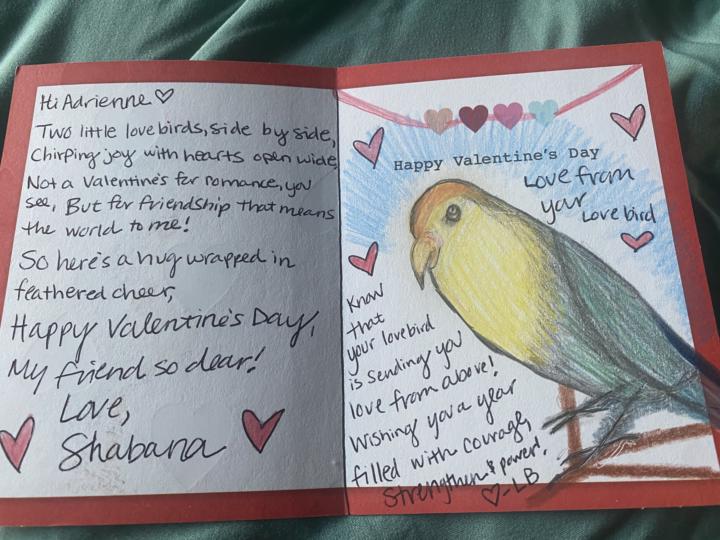 Hi Adrienne ♡
Two little lovebirds, side by side,
Chirping joy with hearts open wide,
Not a Valentine's for romance, you
see, But for friendship that means
the world to me!
So here's a hug wrapped in
feathered cheer,
Happy Valentine's Day,
My friend so dear!
Love,
Shabana
Happy Valentine's Day
Love from
your
Love bird
Know
that
your lovebird
is sending you
love from above!
Wishing you a year
filled with courage,
strength & power!
♡-LB